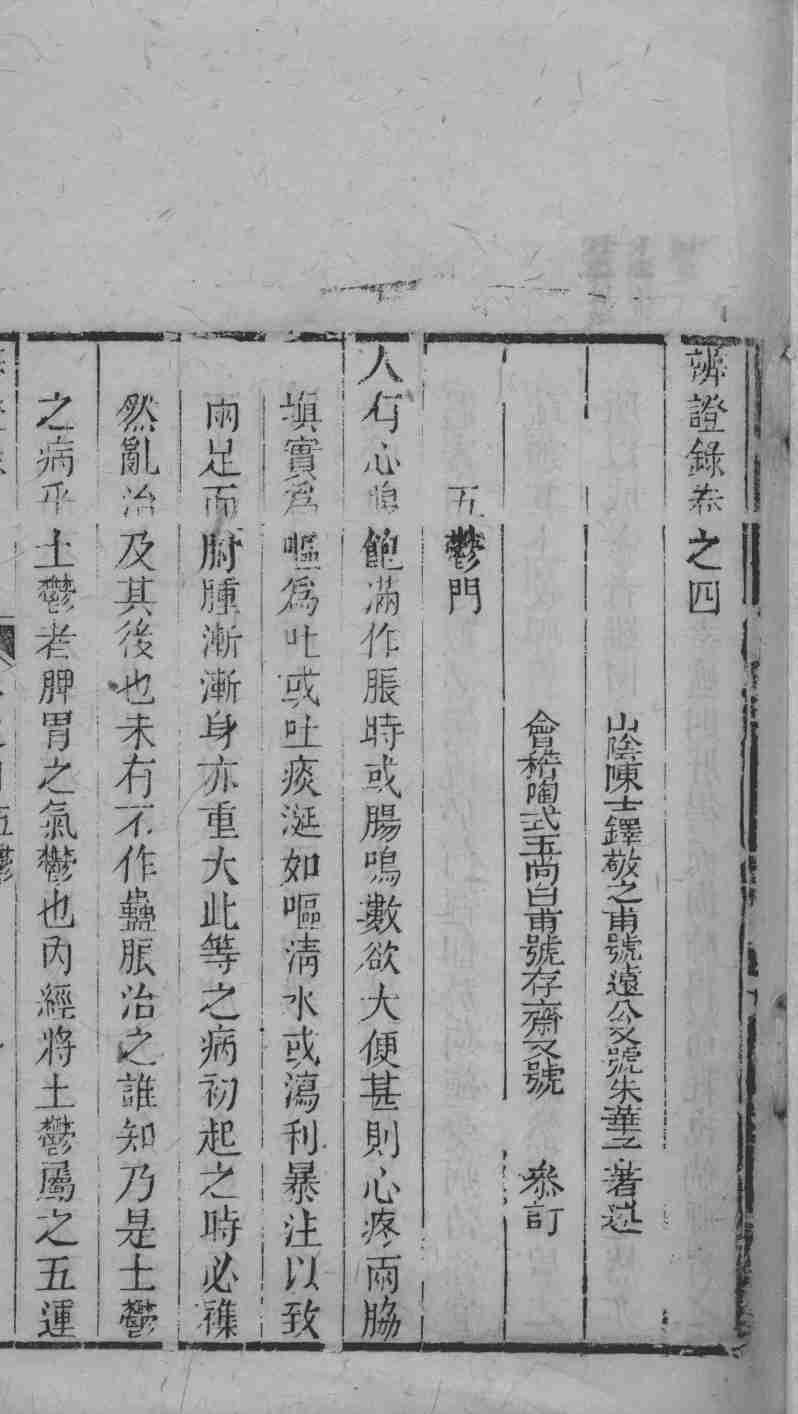 辨證錄卷之四
山陰陳士鐸敬之甫號遠公又號朱華子著述
會稽陶式玉尚白甫號存齋又號　參訂
五鬱門
人有心腹飽滿作脹時或腸鳴數欲大便甚則心疼兩脇
填實爲嘔爲吐或吐痰涎如嘔清水或瀉利暴注以致
兩足面胕腫漸漸身亦重大此等之病初起之時必雜
然亂治及其後也未有不作蠱脹治之誰知乃是土鬱
之病乎土鬱者脾胃之氣鬱也內經將土鬱屬之五運